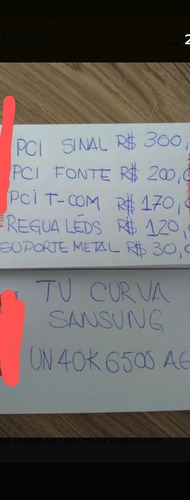 Produto
2
PCI SINAL R$ 300,
PCI FONTE R$ 200,0
PCI T-COM R$ 170,
REGUA LÉDS R$ 120,
SUPORTE METAL R$ 30,0
TV CURVA
SANSUNG
UN40K6500AG